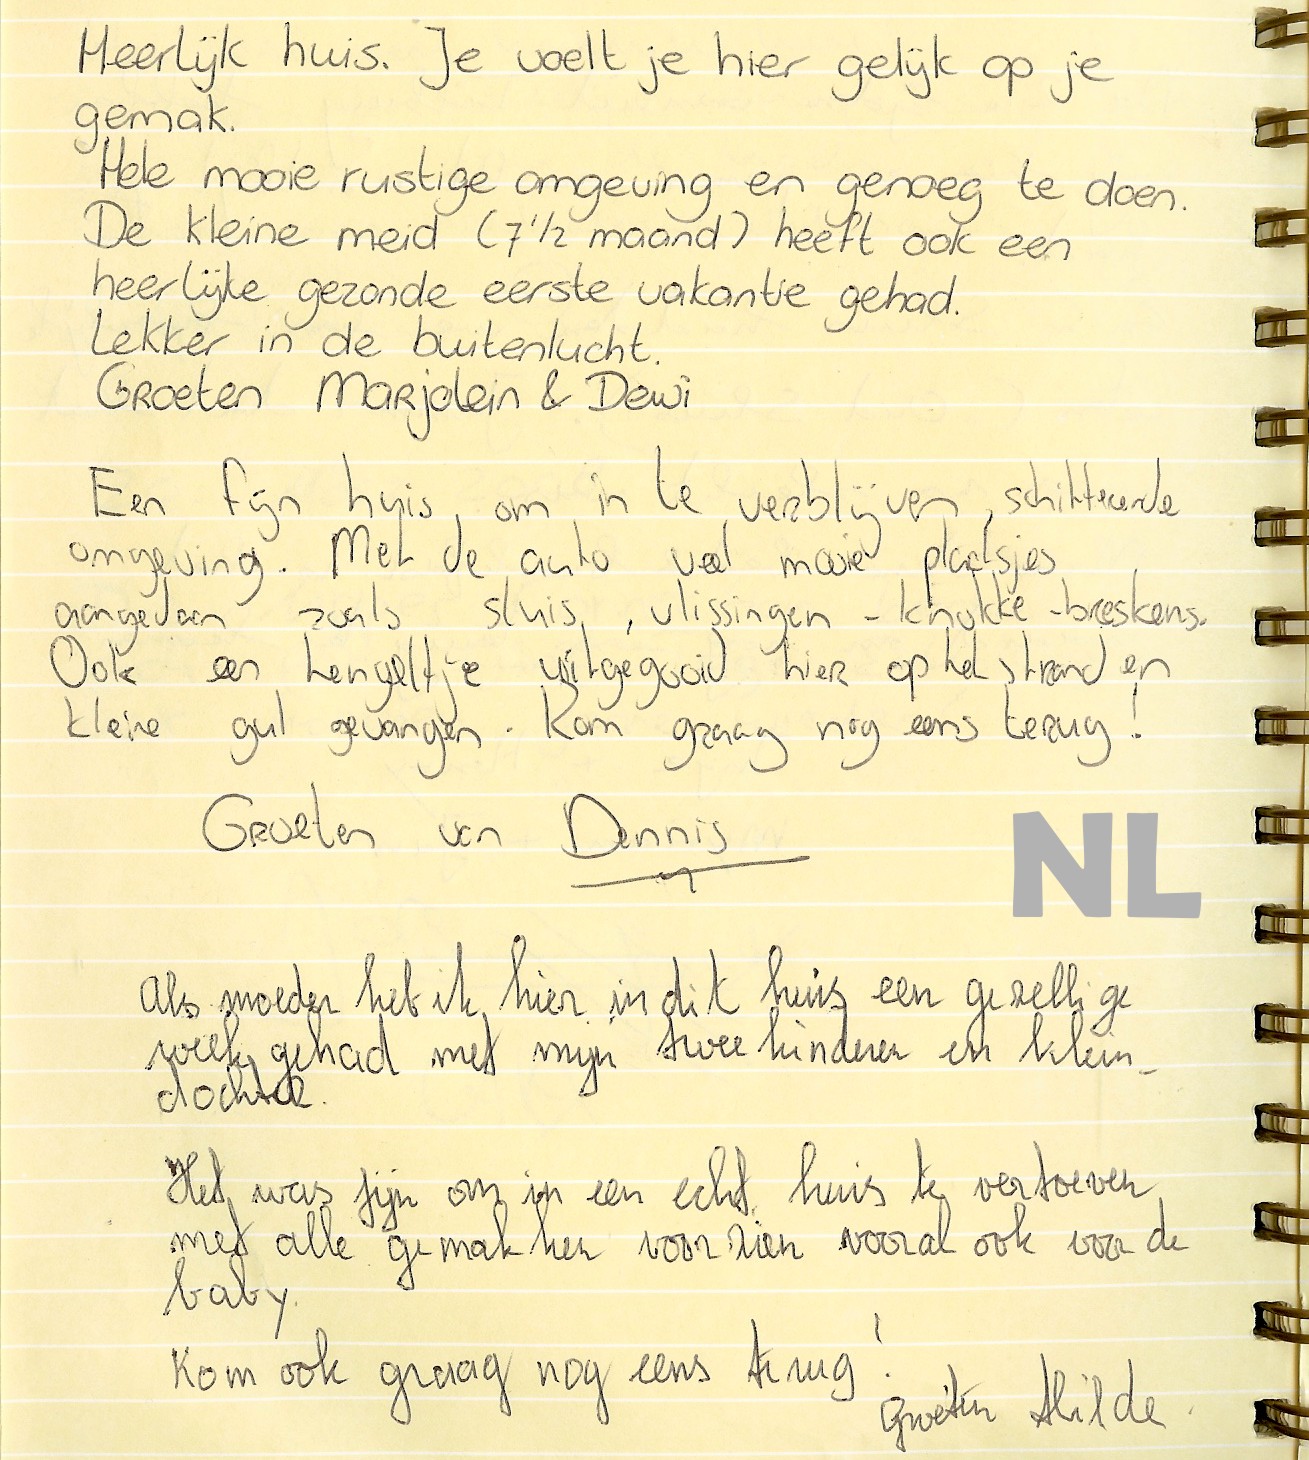 Heerlijk huis. Je voelt je hier gelijk op je
gemak.
Hele mooie rustige omgeving en genoeg te doen.
De kleine meid (7 1/2 maand) heeft ook een
heerlijke gezonde eerste vakantie gehad.
Lekker in de buitenlucht.
Groeten Marjolein & Dewi
Een fijn huis om in te verblijven, schitterende
omgeving. Met de auto veel mooie plaatsjes
aangedaan zoals sluis, vlissingen - knokke - breskens.
Ook een hengeltje uitgegooid hier op het strand en
kleine gul gevangen. Kom graag nog eens terug!
Groeten van Dennis
NL
Als moeder heb ik hier in dit huis een gezellige
week gehad met mijn twee kinderen en klein-
dochter.
Het was fijn om in een echt huis te vertoeven
met alle gemakken voorzien vooral ook voor de
baby.
Kom ook graag nog eens terug!
Groeten Hilde